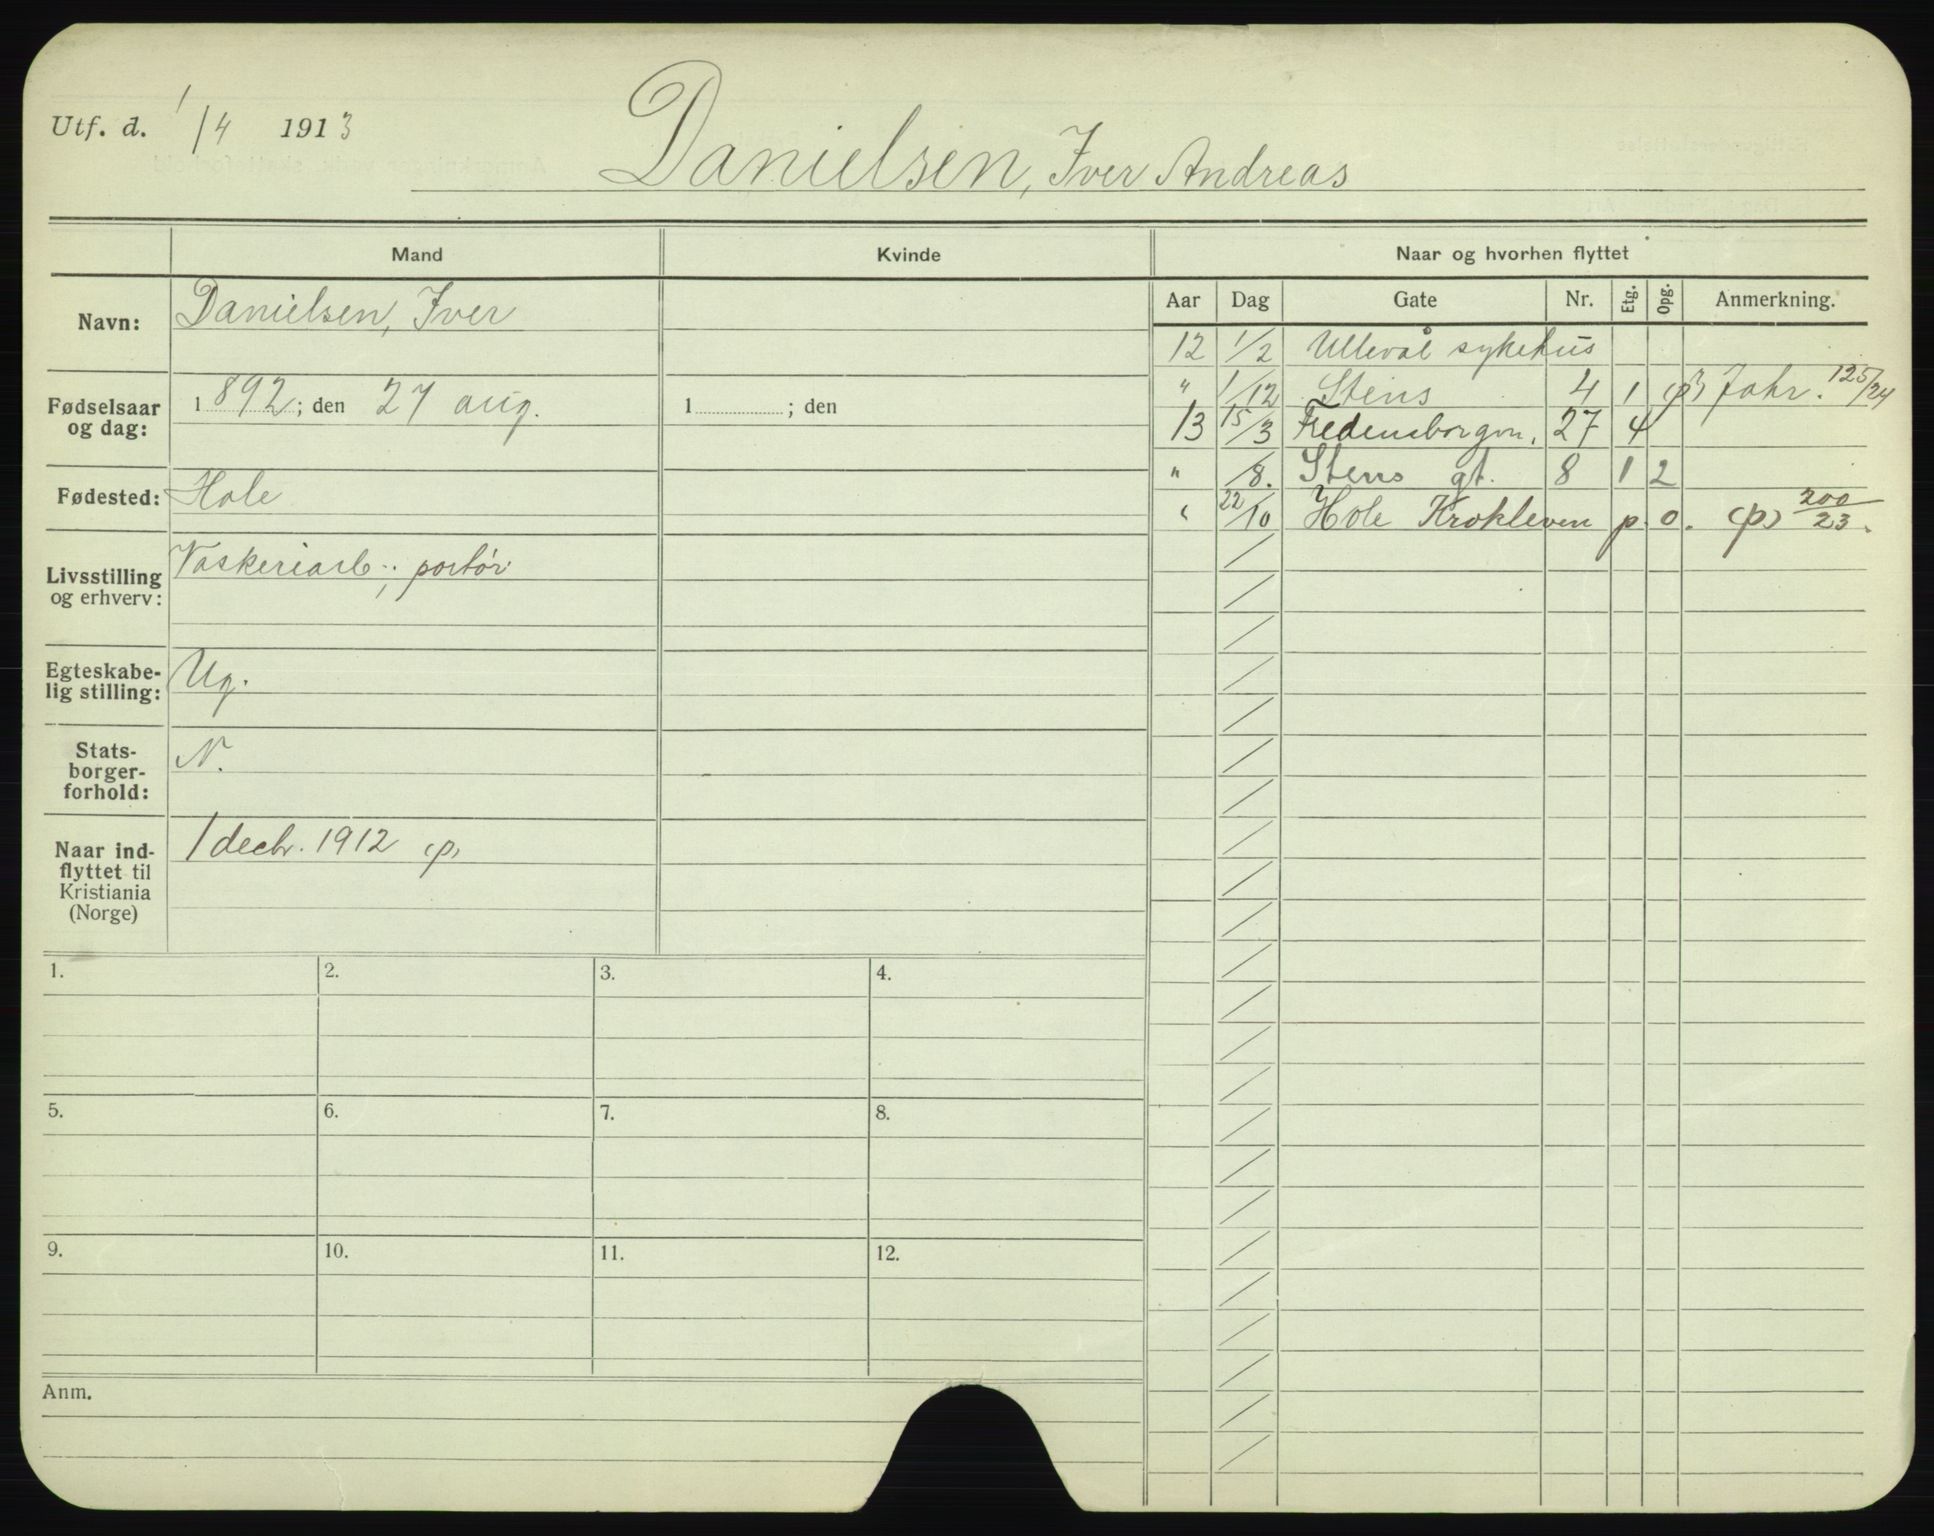 Utf. d. 1/4 1913
Danielsen, Iver Andreas
Mand Kvinde Naar og hvorhen flyttet
Navn: Danielsen, Iver
Aar Dag Gate Nr. Etg. Opg. Anmerkning.
12 1/2 Ullevål sykehus
" 1/12 Stens 4 1 (p) Johr. 125/24
13 15/3 Fredensborgvn. 27 4
" /8. Stens gt. 8 1 2
" 22/10 Hole Krokleven p. o. (p) 200/23.
Fødselsaar
og dag: 1892; den 27 aug. 1 ; den
Fødested: Hole
Livsstilling
og erhverv: Vaskeriarb.; portør
Egteskabe-
lig stilling: Ug.
Stats-
borger-
forhold: N.
Naar ind-
flyttet til
Kristiania
(Norge) 1 decbr. 1912 (p)
1. 2. 3. 4.
5. 6. 7. 8.
9. 10. 11. 12.
Anm.